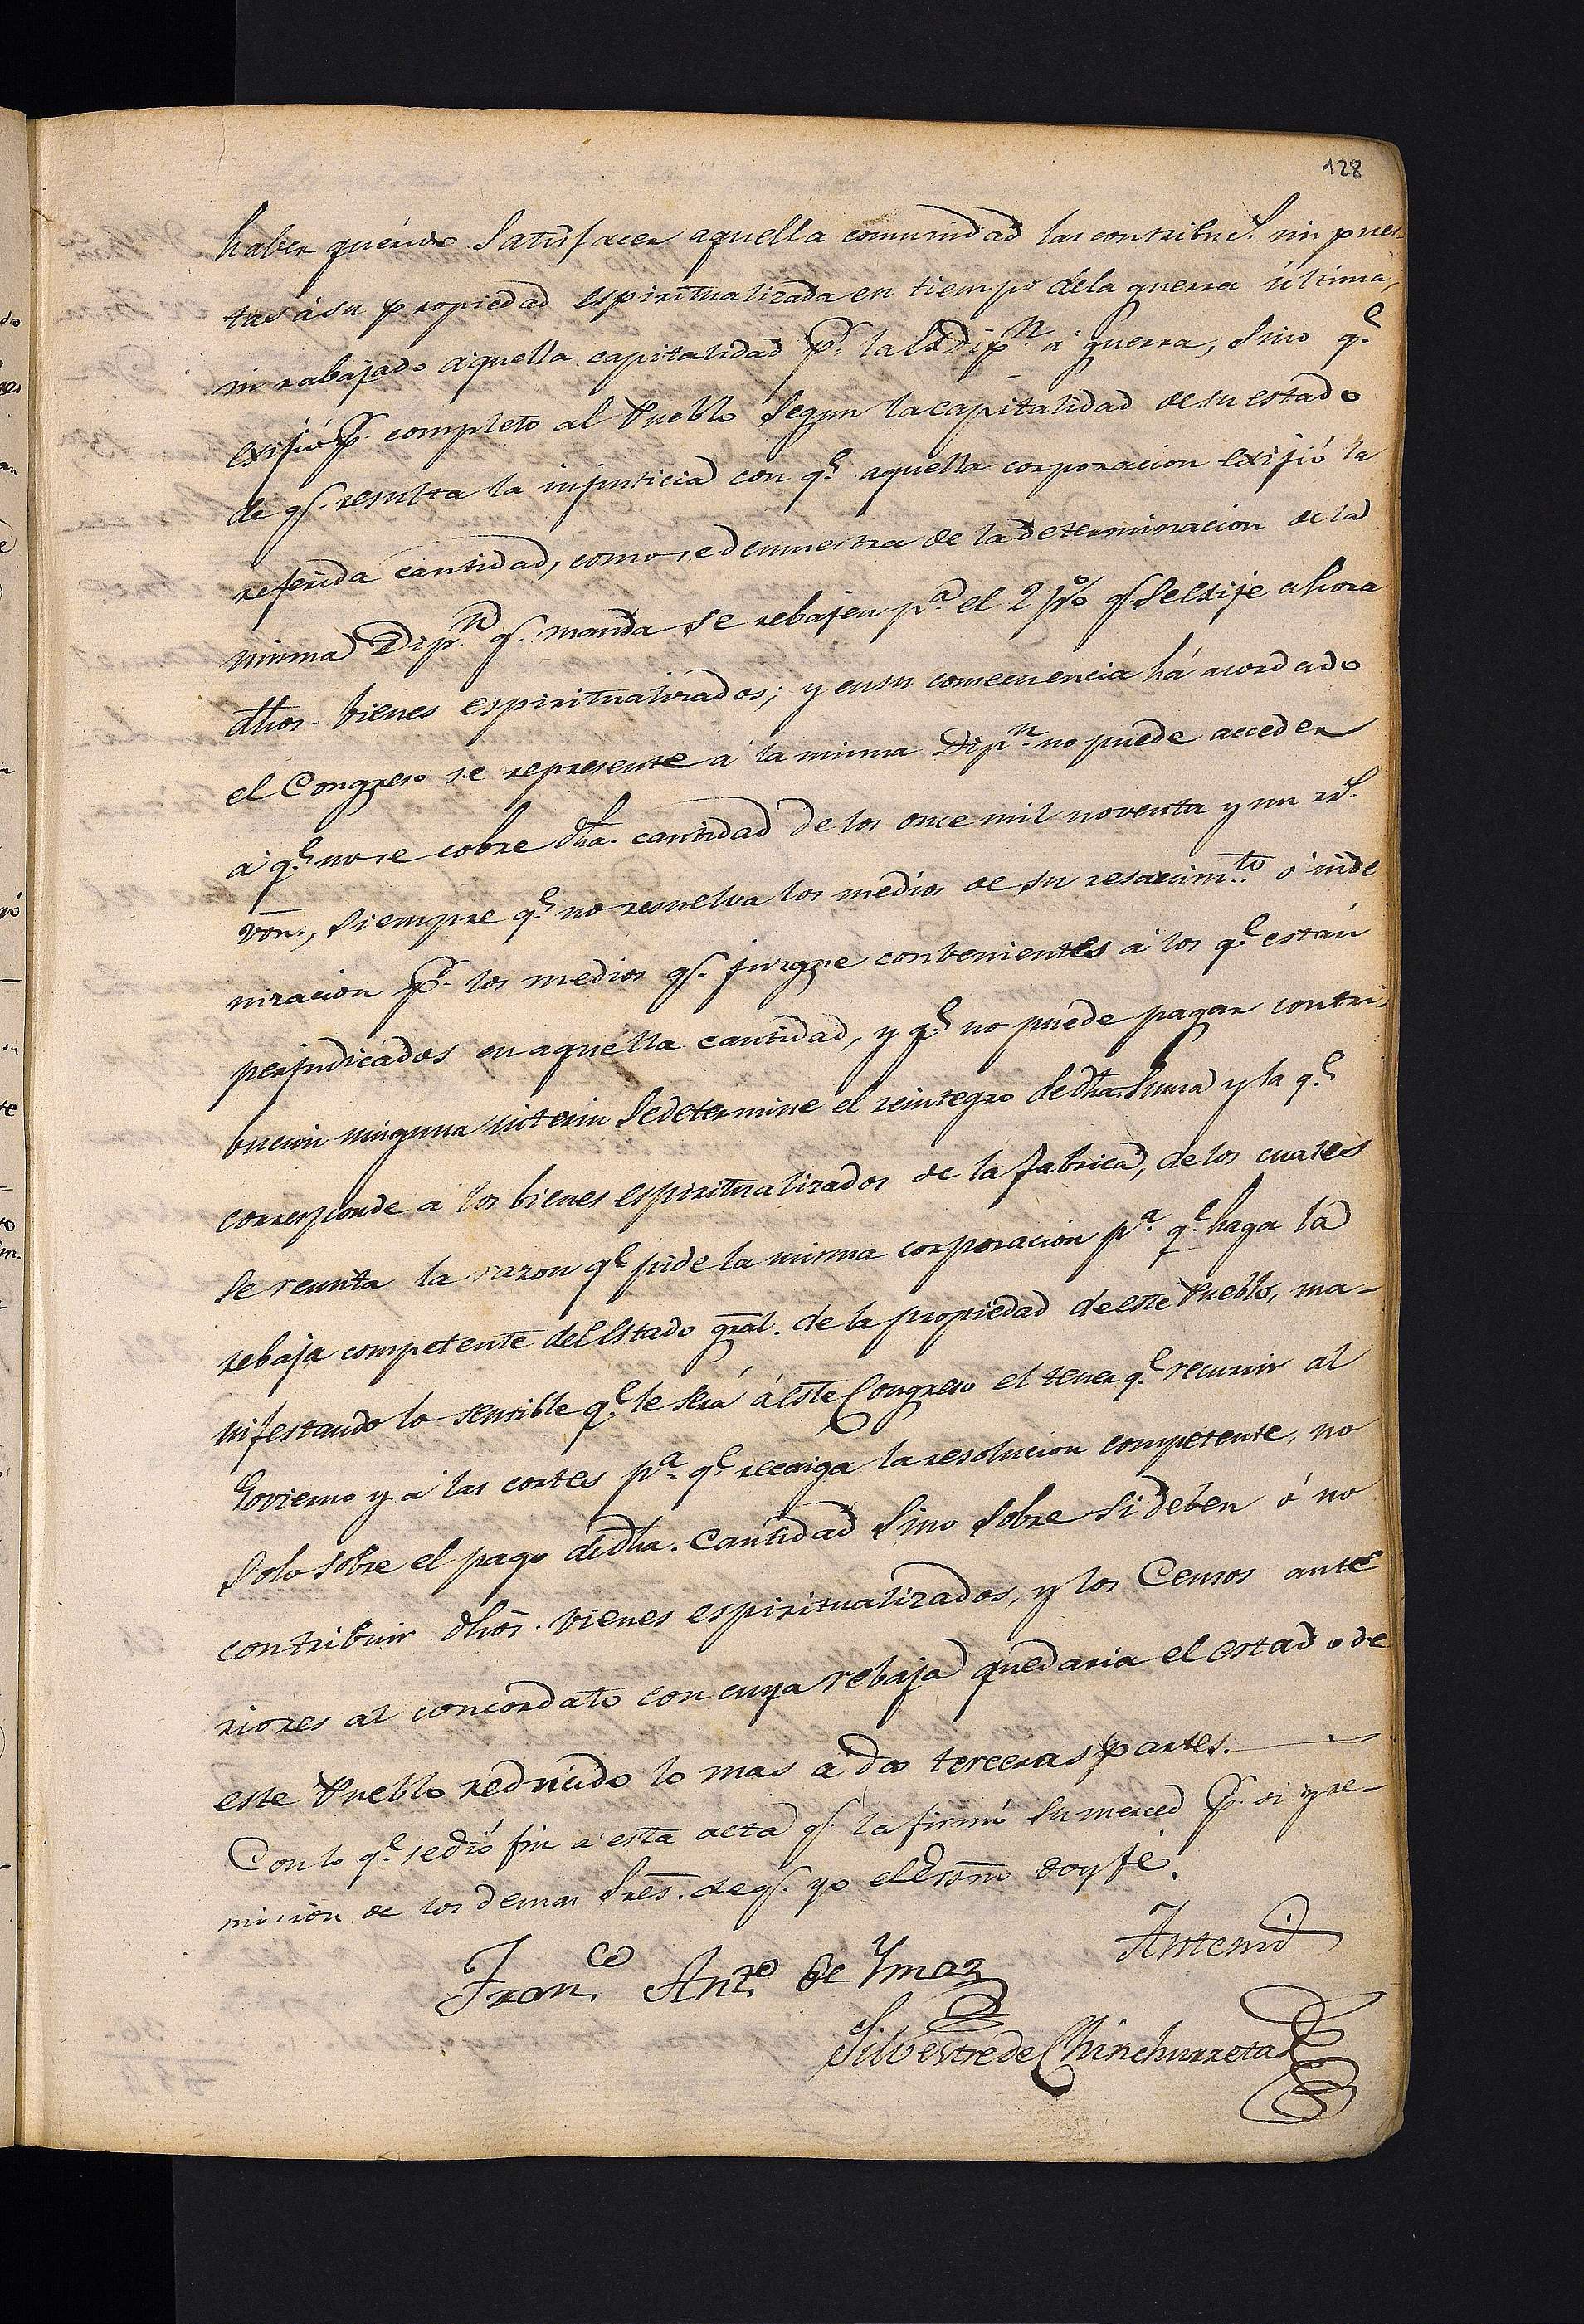 128
haber querido Satisfacer aquella comunidad las contribuc.s impues-
tas á su propiedad espiritualizada en tiempo dela guerra última,
ni rabajado aquella capitalidad p.r la Dip.n á guerra, Sino q.e
exijió p.r completo al Pueblo Segun la capitalidad de su estado
de q.e resulta la injusticia con q.e aquella corporacion exijió la
referida cantidad, como se demuestra de la determinacion de la
misma Dip.n q.e manda se rebajen p.a el 2 p% q.e Se exije ahora
dhos. bienes espiritualizados; y en su consecuencia há acordado
el Congreso se represente á la misma Dip.n no puede acceder
á q.e no se cobre dha. cantidad de los once mil noventa y un rs.
von., Siempre q.e no resuelva los medios de su resarcim.to ó inde
nizacion p.r los medios q.e juzgue conbenientes á los q.e están
perjudicados en aquella cantidad, y q.e no puede pagar contri-
bucion ninguna interin Se determine el reintegro de dha. Suma y la q.e
corresponde a los bienes espiritualizados de la fabrica, de los cuales
Se remita la razon q.e pide la misma corporacion p.a q.e haga la
rebaja competente del Estado gral. de la propiedad de este Pueblo, ma-
nifestando lo sensible q.e le será á este Congreso el tener q.e recurrir al
Govierno y á las cortes p.a q.e recaiga la resolucion competente, no
Solo sobre el pago de dha. Cantidad Sino Sobre Si deben ó no
contribuir dhos. vienes espiritualizados, y los Censos ante
riores al concordato con cuya rebaja quedaria el estado de
este Pueblo reducido lo mas á dos terceras partes.
Con lo q.e se dió fin a esta acta q.e la firmó Su merced p.r si y re-
mision de los demas Sres. de q.e yo el Essno doy fé.
Fran.co Ant.o de Ymaz
Antemi
Silvestre de Chinchurreta